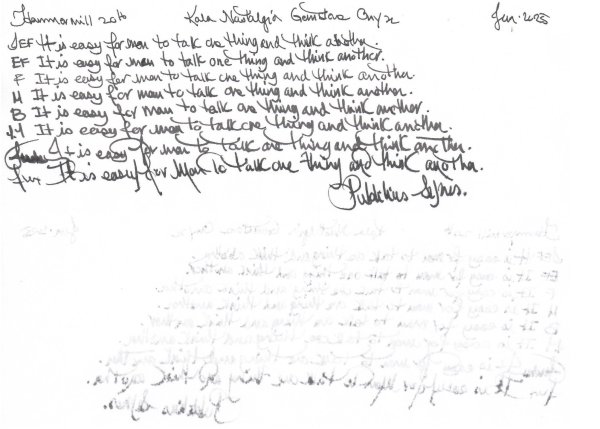 Hammermill 20 lb Kala Nostalgia Gemstone Onyx Jun. 2025
JEF It is easy for men to talk one thing and think another.
EF It is easy for men to talk one thing and think another.
F It is easy for men to talk one thing and think another.
M It is easy for men to talk one thing and think another.
B It is easy for men to talk one thing and think another.
1.1 It is easy for men to talk one thing and think another.
It is easy for men to talk one thing and think another.
fur It is easy for Men to talk one thing and think another.
Publilius Syrus.